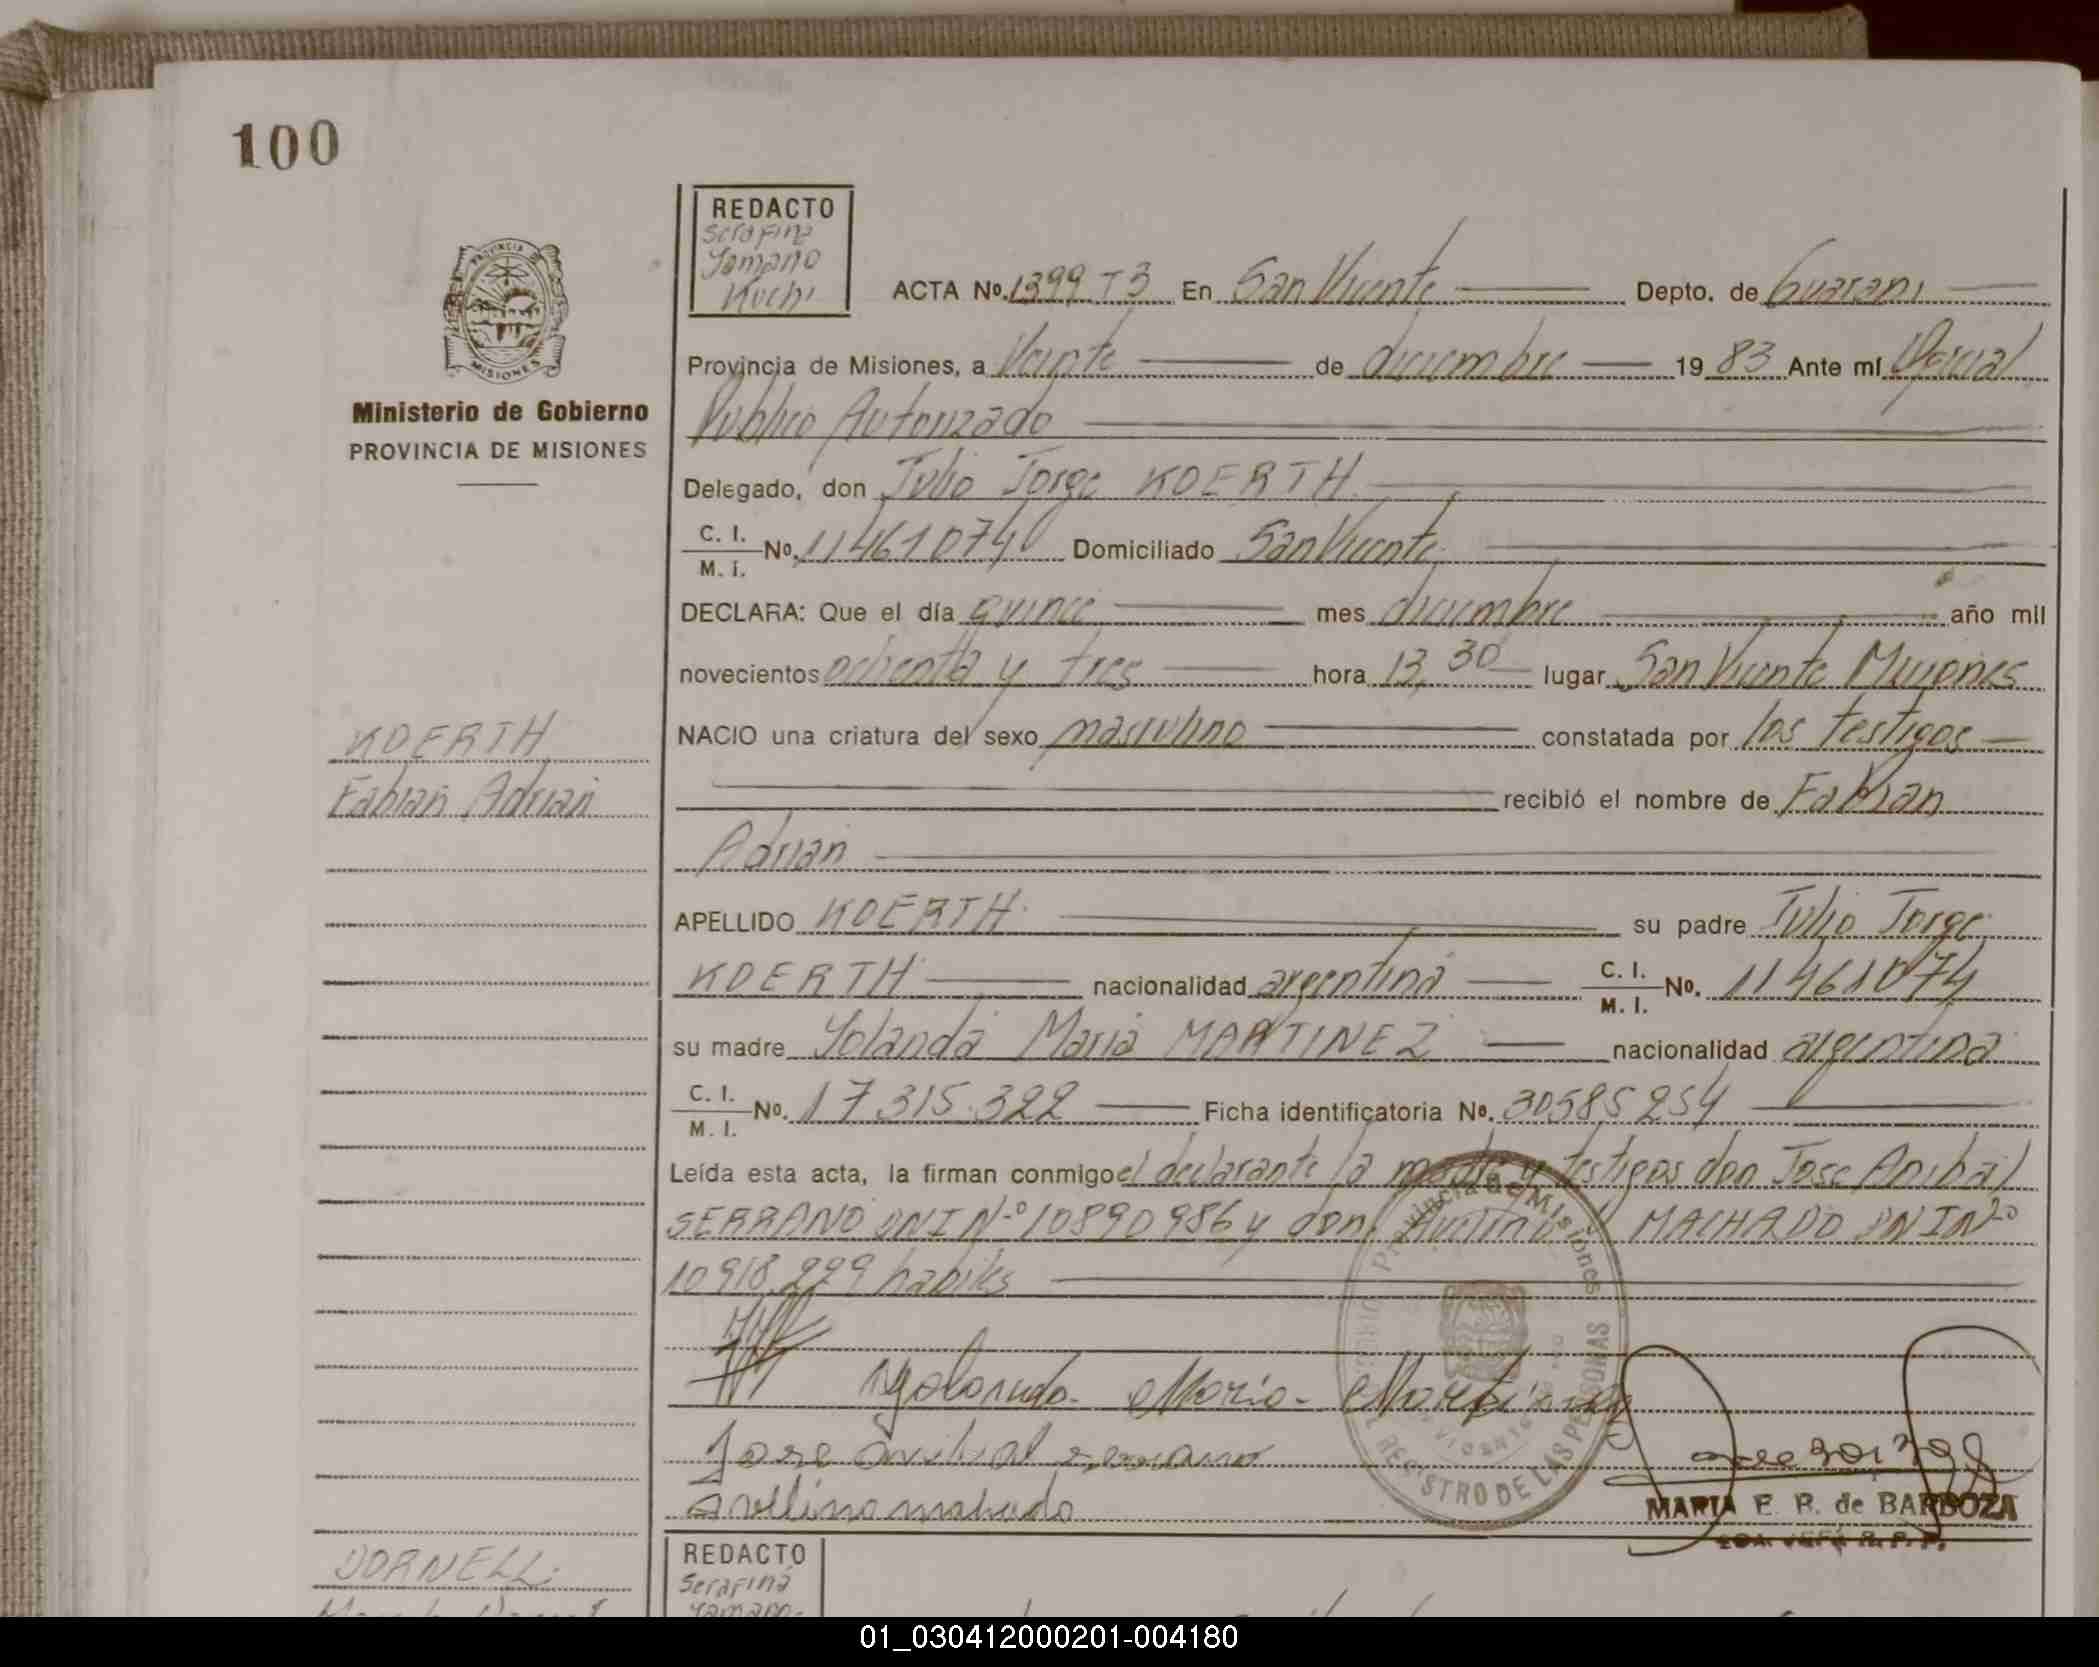 100
REDACTO
Serafina
Yamano
Kuchi
PROVINCIA DE
MISIONES
ACTA Nº. 1399 T3 En San Vicente Depto. de Guarani
Provincia de Misiones, a Veinte de diciembre 1983 Ante mí Oficial
Publico Autorizado
Ministerio de Gobierno
PROVINCIA DE MISIONES
Delegado, don Julio Jorge KOERTH
C. I.
M. I. Nº. 11461074 Domiciliado San Vicente
DECLARA: Que el día quince mes diciembre año mil
novecientos ochenta y tres hora 13,30 lugar San Vicente Misiones
NACIO una criatura del sexo masculino constatada por los testigos
KOERTH
Fabian Adrian
recibió el nombre de Fabian
Adrian
APELLIDO KOERTH su padre Julio Jorge
KOERTH nacionalidad argentina C. I.
M. I. Nº. 11461074
su madre Yolanda Maria MARTINEZ nacionalidad argentina
C. I.
M. I. Nº. 17.315.322 Ficha identificatoria Nº. 30585254
Leída esta acta, la firman conmigo el declarante la madre y testigos don Jose Anibal
SERRANO DNI Nº 10890986 y don MACHADO DNI Nº
10918.229 habiles
Provincia de Misiones
REGISTRO DE LAS PERSONAS
Yolanda Maria Martinez
Jose Anibal Serrano
Avellino mahado
MARIA E. R. de BARBOZA
DORNELL
REDACTO
Serafina
Yamano
01_030412000201-004180